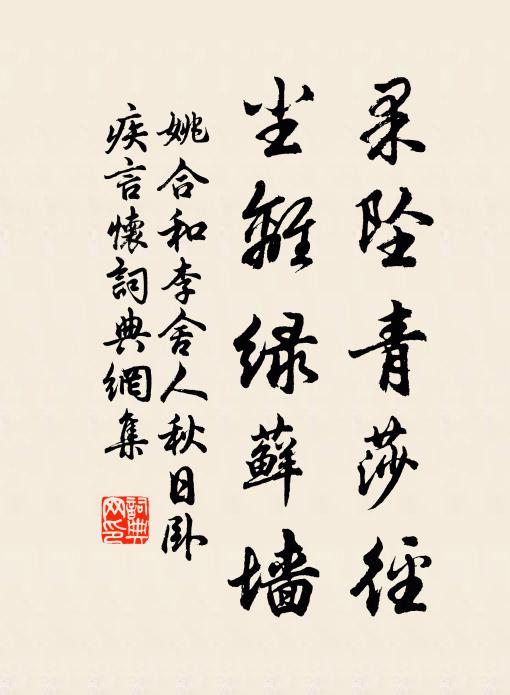 果坠青莎径
尘離绿蘚墙
姚合和李舍人秋日卧
疾言懷詞典網集
詞典网印